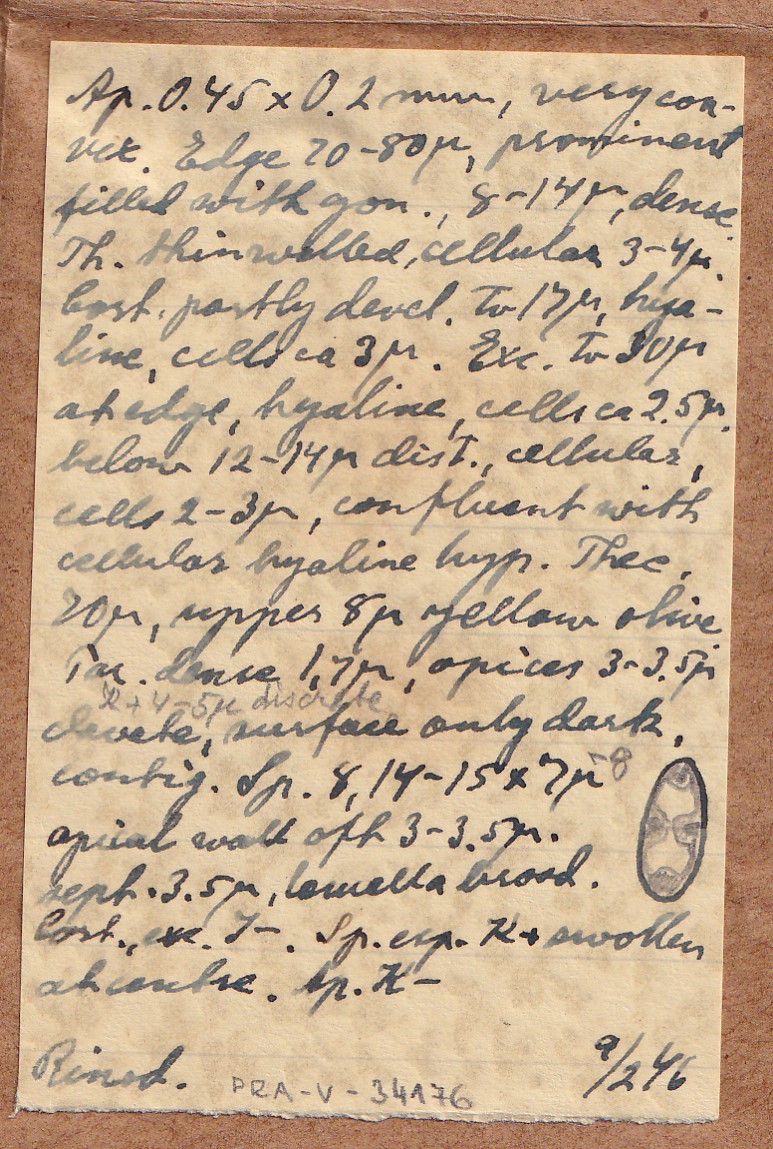 Ap. 0.45 x 0.2 mm, very con-
vex. Edge 70-80µ, prominent
filled with gon., 8-14µ, dense.
Th. thinwalled, cellular 3-4µ.
Cort. partly devel. to 17µ, hya-
line, cells ca 3µ. Exc. to 30µ
at edge, hyaline, cells ca 2.5µ,
below 12-14µ dist., cellular,
cells 2-3µ, confluent with
cellular hyaline hyp. Thec.
70µ, upper 8µ yellow olive
Par. dense 1,7µ, apices 3-3.5µ
K+ 4-5µ discrete
clavate, surface only dark,
contig. Sp. 8, 14-15 x 7µ -8
apical wall oft 3-3.5µ.
sept. 3.5µ, lamella broad.
Cort., exc. I-. Sp. esp. K+ swollen
at centre. Ap. K-
Rinod. 9/246
PRA-V-34176